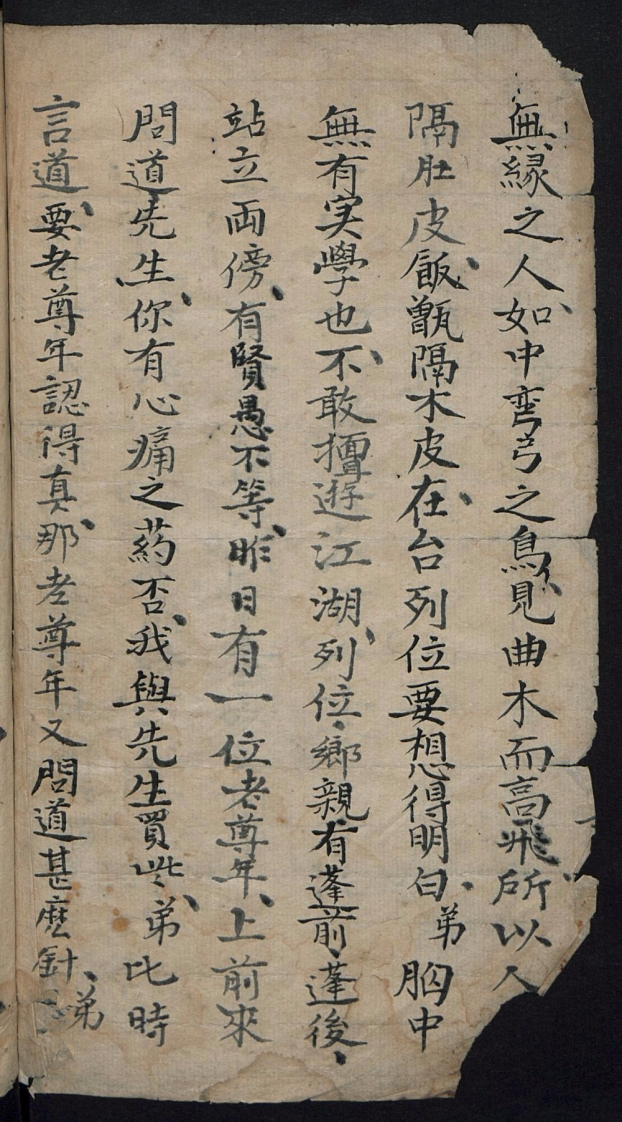 無緣之人、如中弯弓之鳥、見曲木而高飛、所以人
隔肚皮、飯甑隔木皮、在台列位要想得明白、弟胸中
無有実學也、不敢擅遊江湖、列位、鄉親、有蓬前、蓬後、
站立両傍、有賢愚不等、昨日有一位老尊年、上前來
問道先生、你有心痛之葯否、我與先生買些、弟比時
言道、要老尊年認得真、那老尊年又問道甚麽針、弟